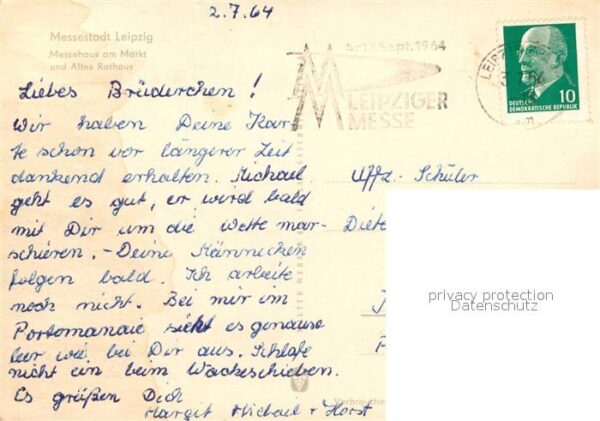 2.7.64
Messestadt Leipzig
Messehaus am Markt
und Altes Rathaus
6.-13. Sept. 1964
LEIPZIGER
MESSE
LEIPZIG
DEUTSCHE
DEMOKRATISCHE REPUBLIK
10
Liebes Brüderchen!
Wir haben Deine Kar-
te schon vor längerer Zeit
dankend erhalten. Michael
geht es gut, er wird bald
mit Dir um die Wette mar-
schieren. - Deine Männecken
folgen bald. Ich arbeite
noch nicht. Bei mir im
Portomanaie sieht es genauso
leer wie bei Dir aus. Schlafe
nicht ein beim Wacheschieben.
Es grüßen Dich
Margit Michael + Horst
Uffz.-Schüler
Diete
privacy protection
Datenschutz